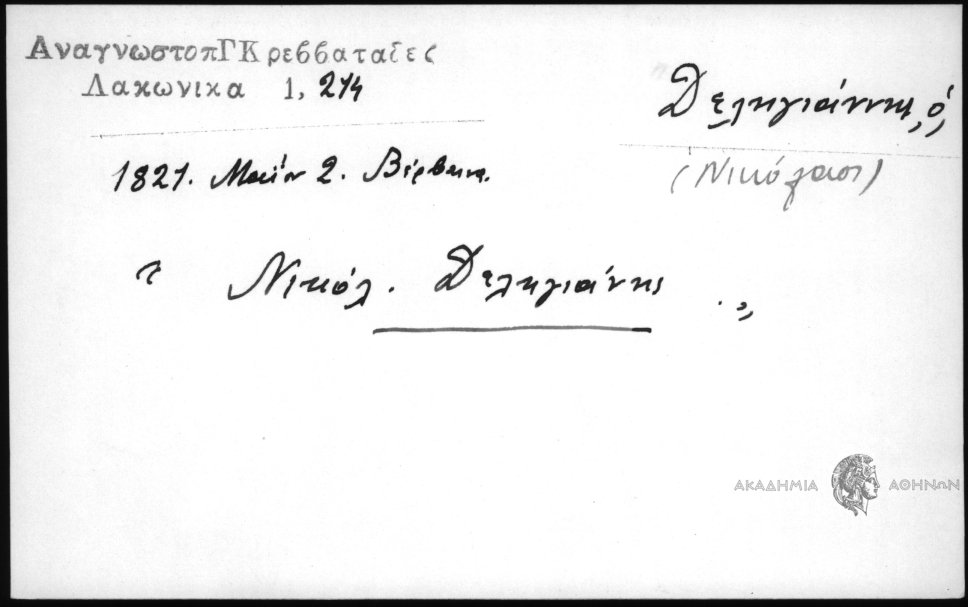 ΑναγνωστοπΓΚρεββαταδες
Λακωνικα 1, 214
Δεληγιάννης, ὁ,
(Νικόλαος)
1821. Μαΐου 2. Βέρβενα.
" Νικόλ. Δεληγιάνης . „
ΑΚΑΔΗΜΙΑ ΑΘΗΝΩΝ